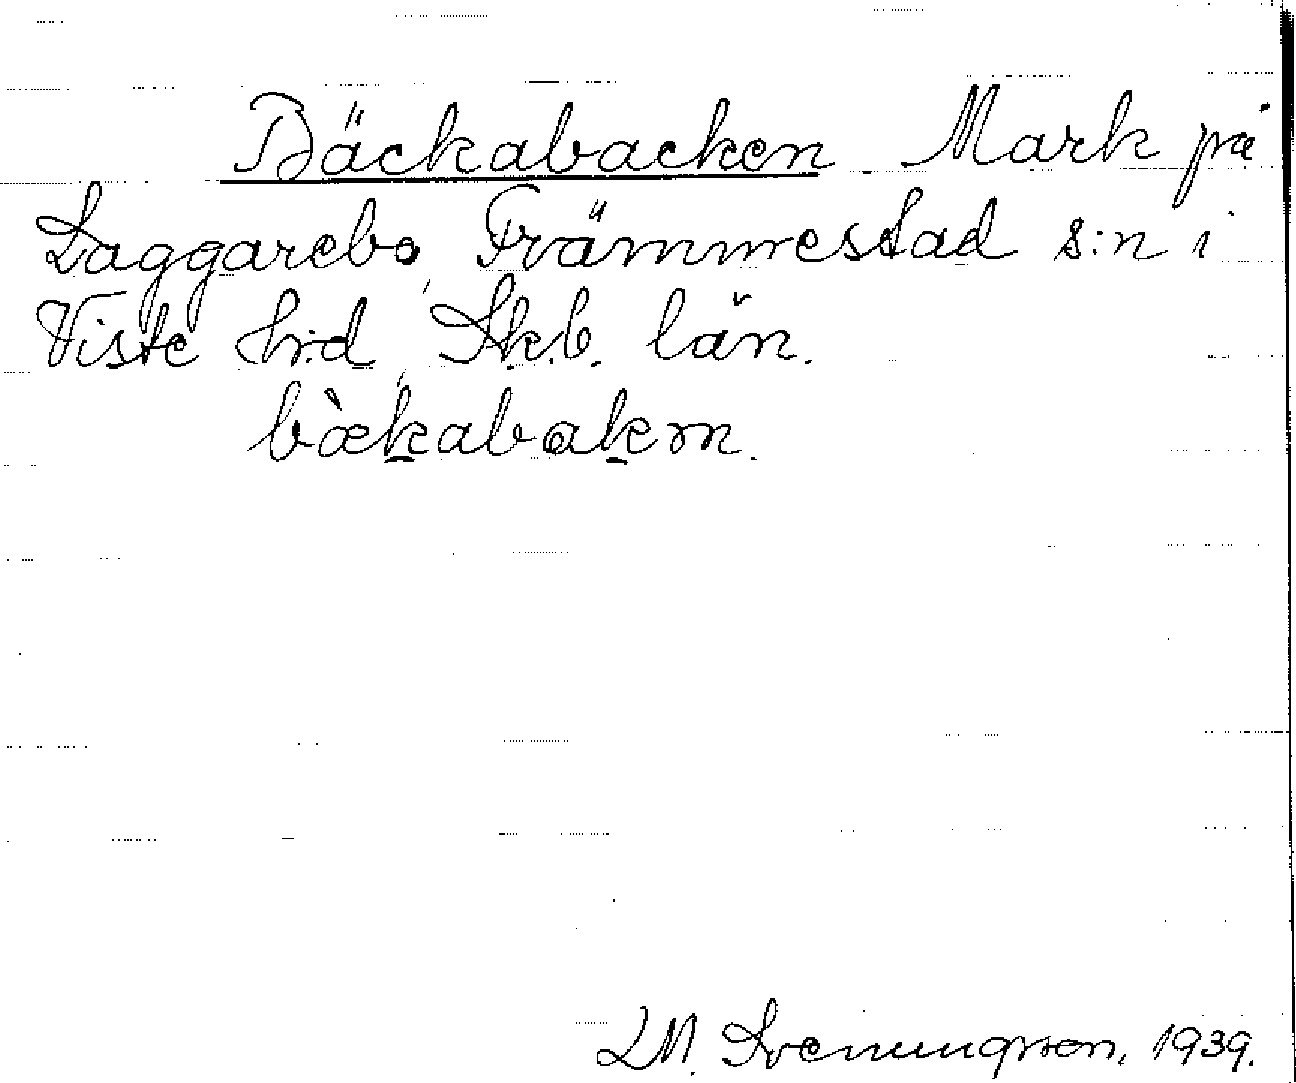 Bäckabacken Mark på
Laggarebo, Främmestad s:n i
Viste h:d, Skb. län.
bækabakɐn.
L.M. Svenungsson, 1939.